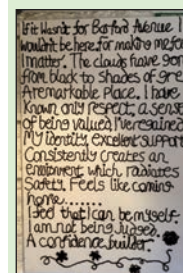 If it wasn't for Barford Avenue I
wouldn't be here, for making me feel
I matter. The clouds have gone
from black to shades of grey
A remarkable Place. I have
known only respect, a sense
of being valued I've regained
My identity, excellent support
Consistently creates an
environment which radiates
Safety. Feels like coming
home.......
I feel that I can be myself.
I am not being judged.
A confidence builder.